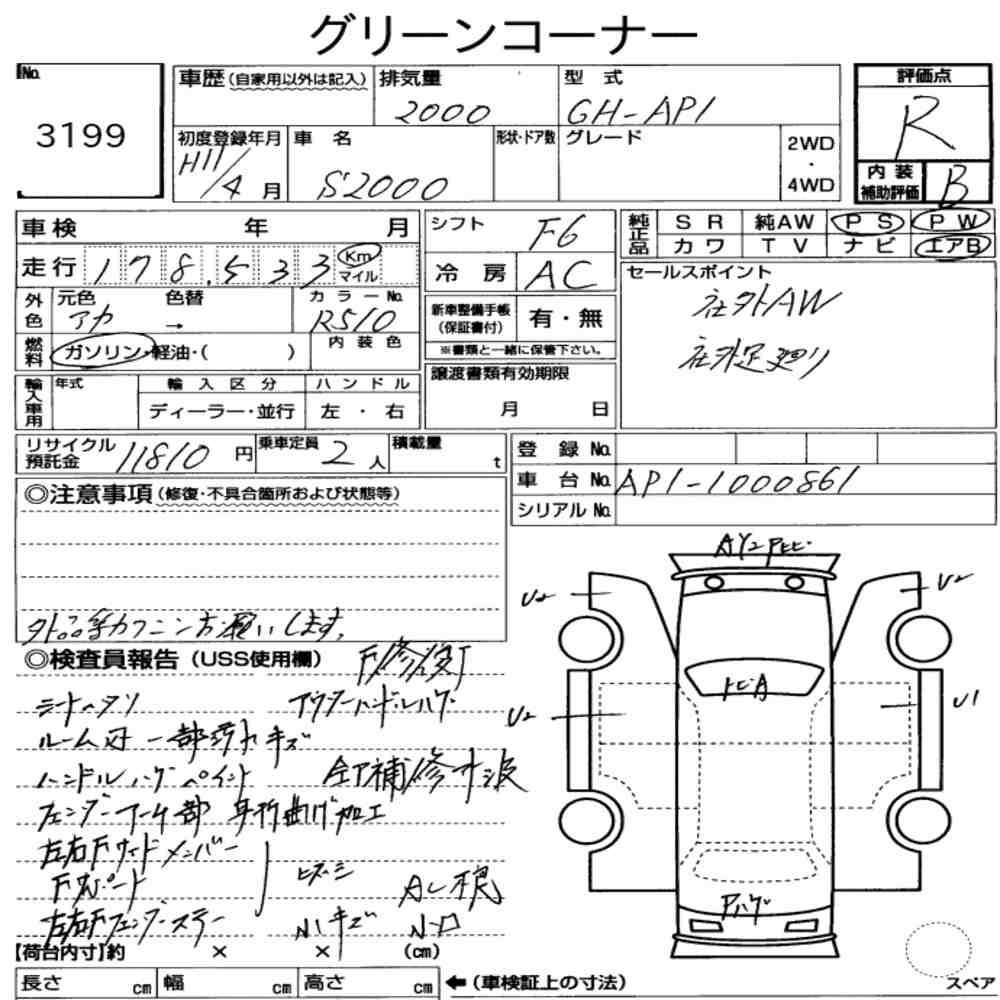 グリーンコーナー
No. 3199
車歴（自家用以外は記入） 排気量 2000 型式 GH-AP1
初度登録年月 H11/4月 車名 S2000 形状・ドア数 グレード 2WD・4WD
評価点 R
内装補助評価 B
車検 年 月
走行 178,533 Km マイル
シフト F6
冷房 AC
純正品 SR 純AW PS PW
カワ TV ナビ エアB
外色 元色 アカ 色替 → カラーNo. R510
燃料 ガソリン・軽油・（ ） 内装色
新車整備手帳（保証書付） 有・無
※書類と一緒に保管下さい。
セールスポイント
社外AW
社外足廻り
輸入車用 年式 輸入区分 ディーラー・並行 ハンドル 左・右
譲渡書類有効期限 月 日
リサイクル預託金 11810円 乗車定員 2人 積載量 t
登録No.
車台No. AP1-1000861
シリアルNo.
◎注意事項（修復・不具合箇所および状態等）
◎検査員報告（USS使用欄）
シートヘタリ アウターハンドルハゲ
ルーム内 一部汚れキズ
ハンドルハゲ ペイント 全T補修寸波
フェンダーアーチ部 耳折曲げ加工
左右Fサイドメンバー
左右Fフェンダーステー 小キズ
U2
U2
U2
U1
トビA
Aハゲ
【荷台内寸】約 × × （cm）
長さ cm 幅 cm 高さ cm ←（車検証上の寸法）
スペア